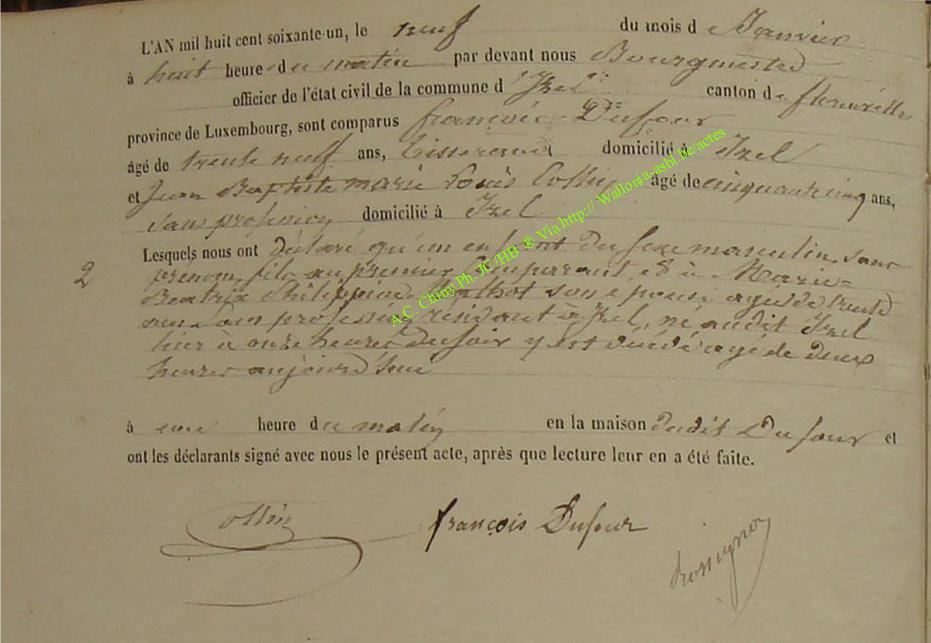 L'AN mil huit cent soixante-un, le neuf du mois d e Janvier
à huit heure du matin par devant nous Bourgmestre
officier de l'état civil de la commune d'Izel canton de florenville
province de Luxembourg, sont comparus françois Dufour
âgé de trente neuf ans, tisserand domicilié à Izel
et Jean Baptiste marie Louis Collin âgé de cinquante cinq ans,
sans profession domicilié à Izel
Lesquels nous ont déclaré qu'un enfant du sexe masculin, sans
2 prénom, fils au premier Comparant, et à Marie-
Beatrix Philippine son epouse agée de trente
ans sans profession résidant à Izel, né audit Izel
hier à onze heures du soir y est décédé agé de deux
heures aujourd'hui
à une heure du matin en la maison dudit Dufour et
ont les déclarants signé avec nous le présent acte, après que lecture leur en a été faite.
Collin françois Dufour Rossignon
A.C. Chiny Ph JC /HB ® Via http:// Wallonia-asbl.be/actes